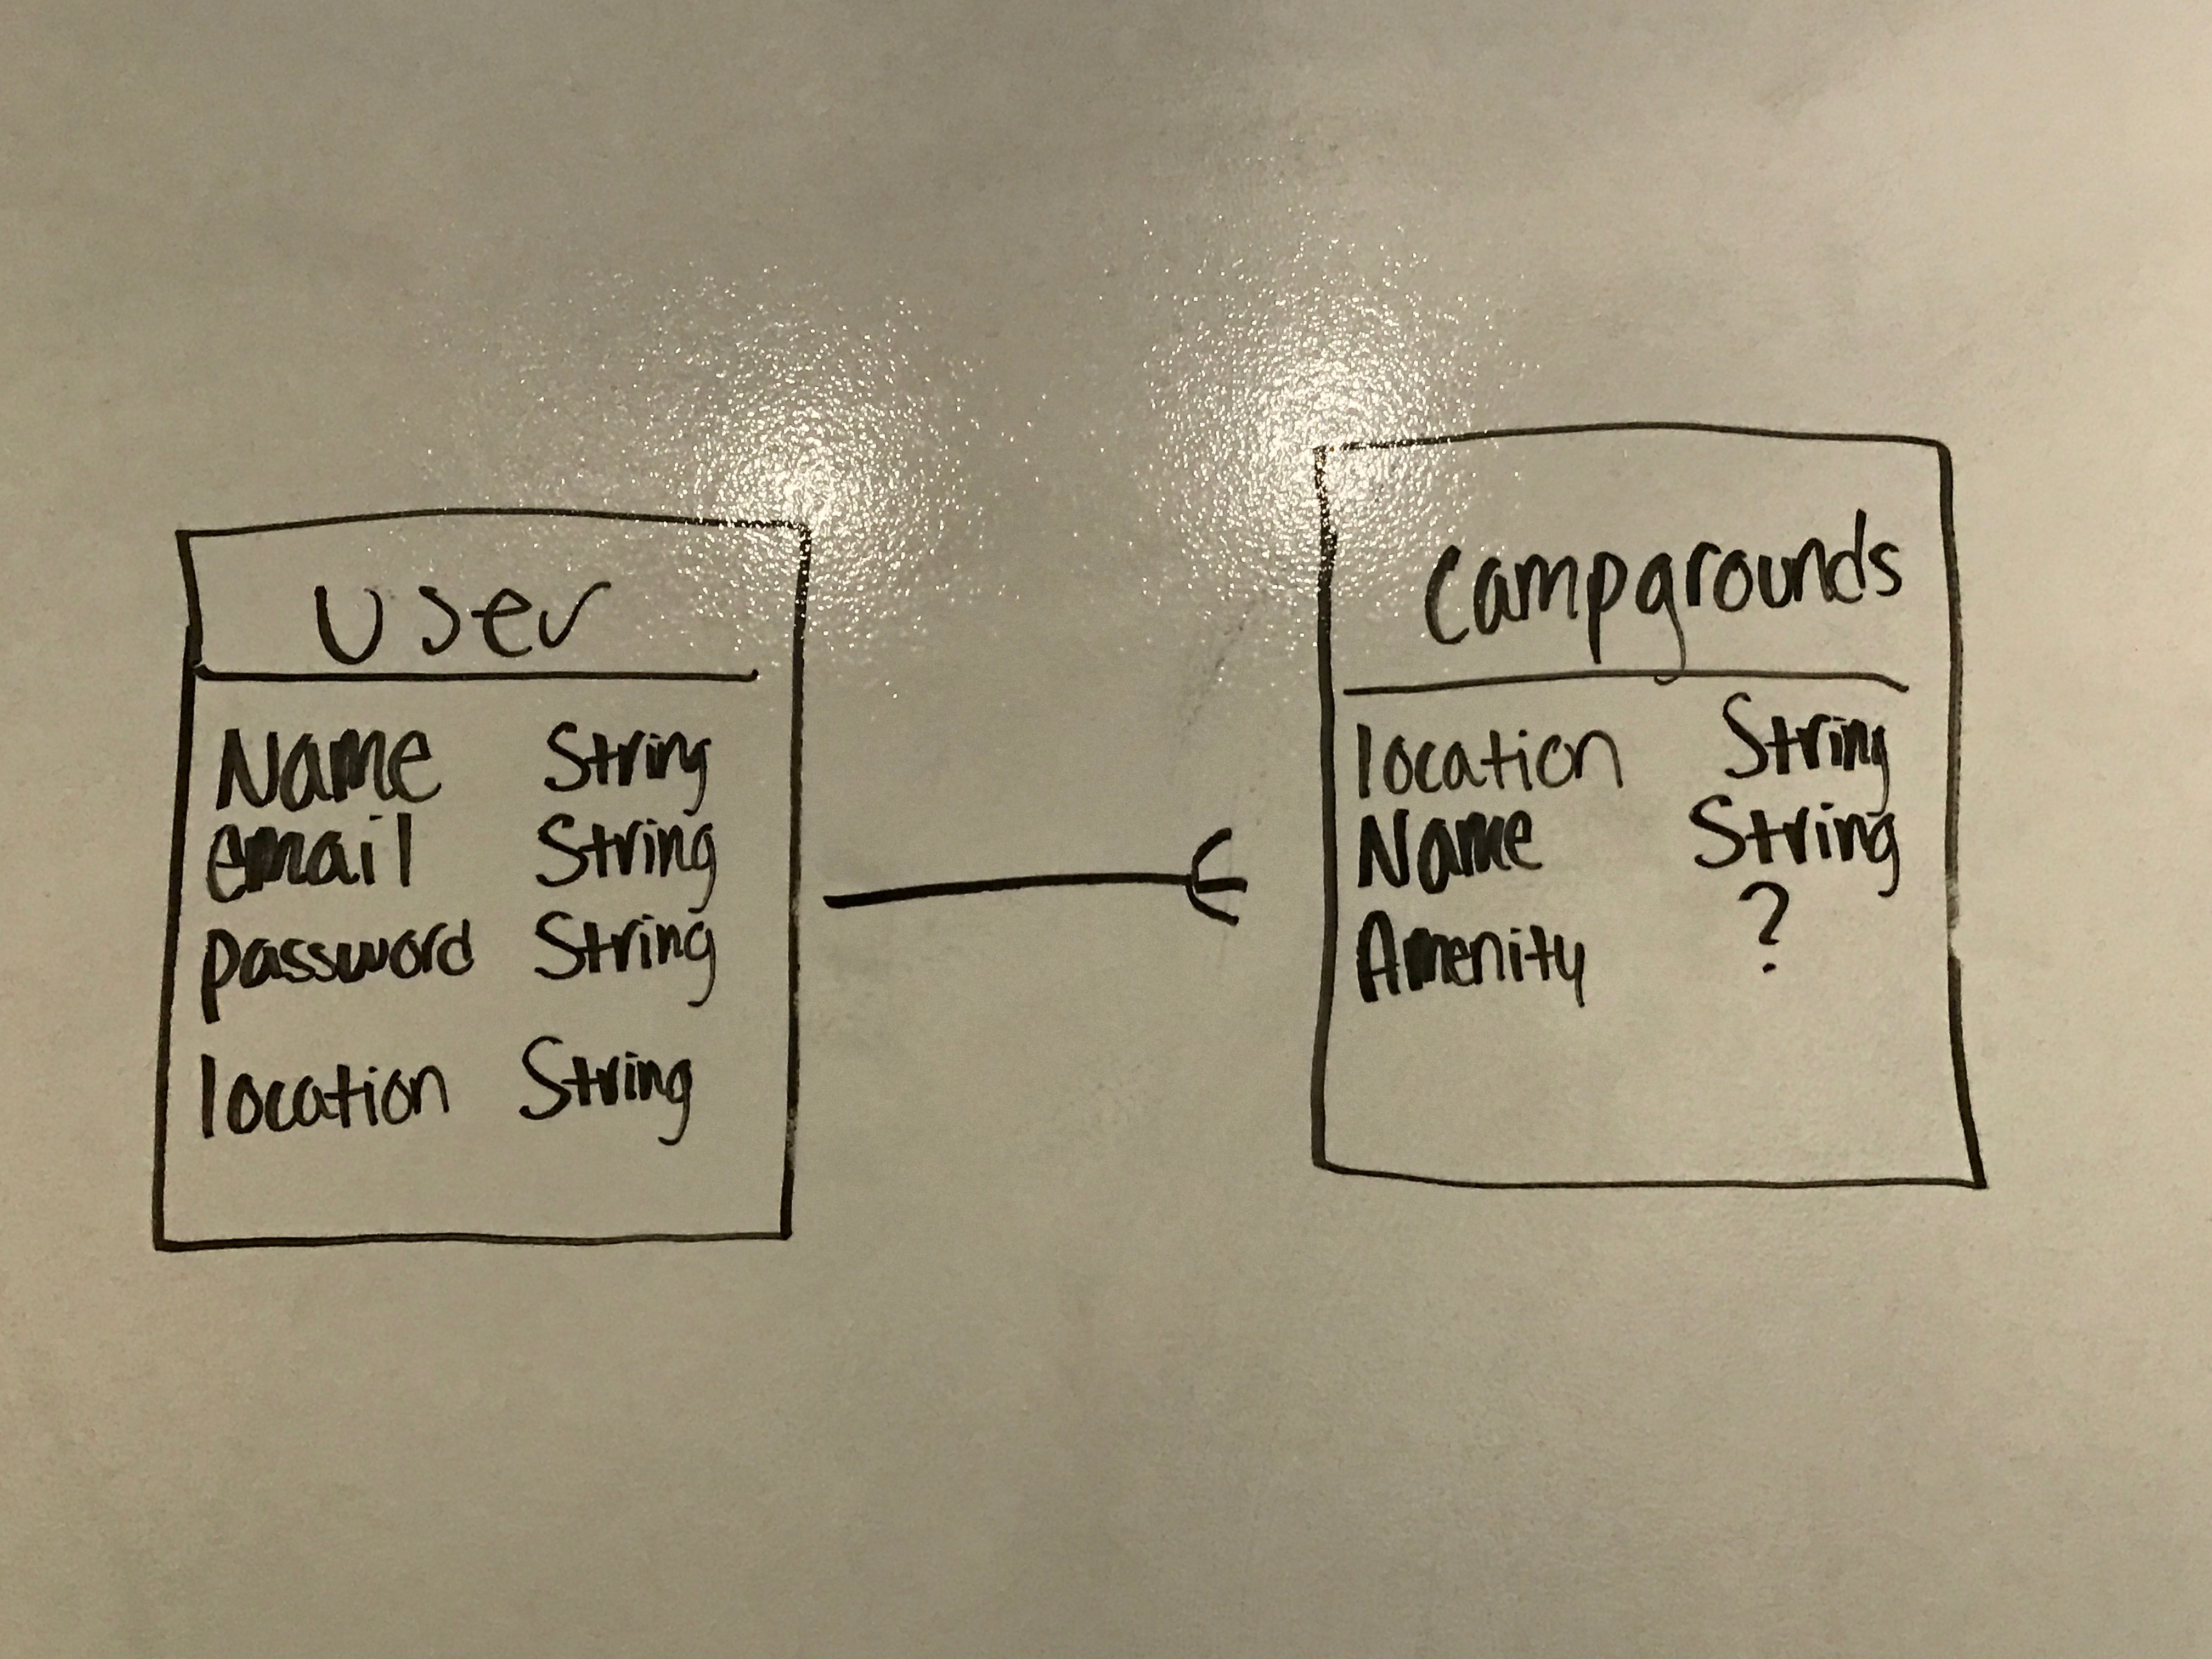 User
Name String
email String
password String
location String
Campgrounds
location String
Name String
Amenity ?